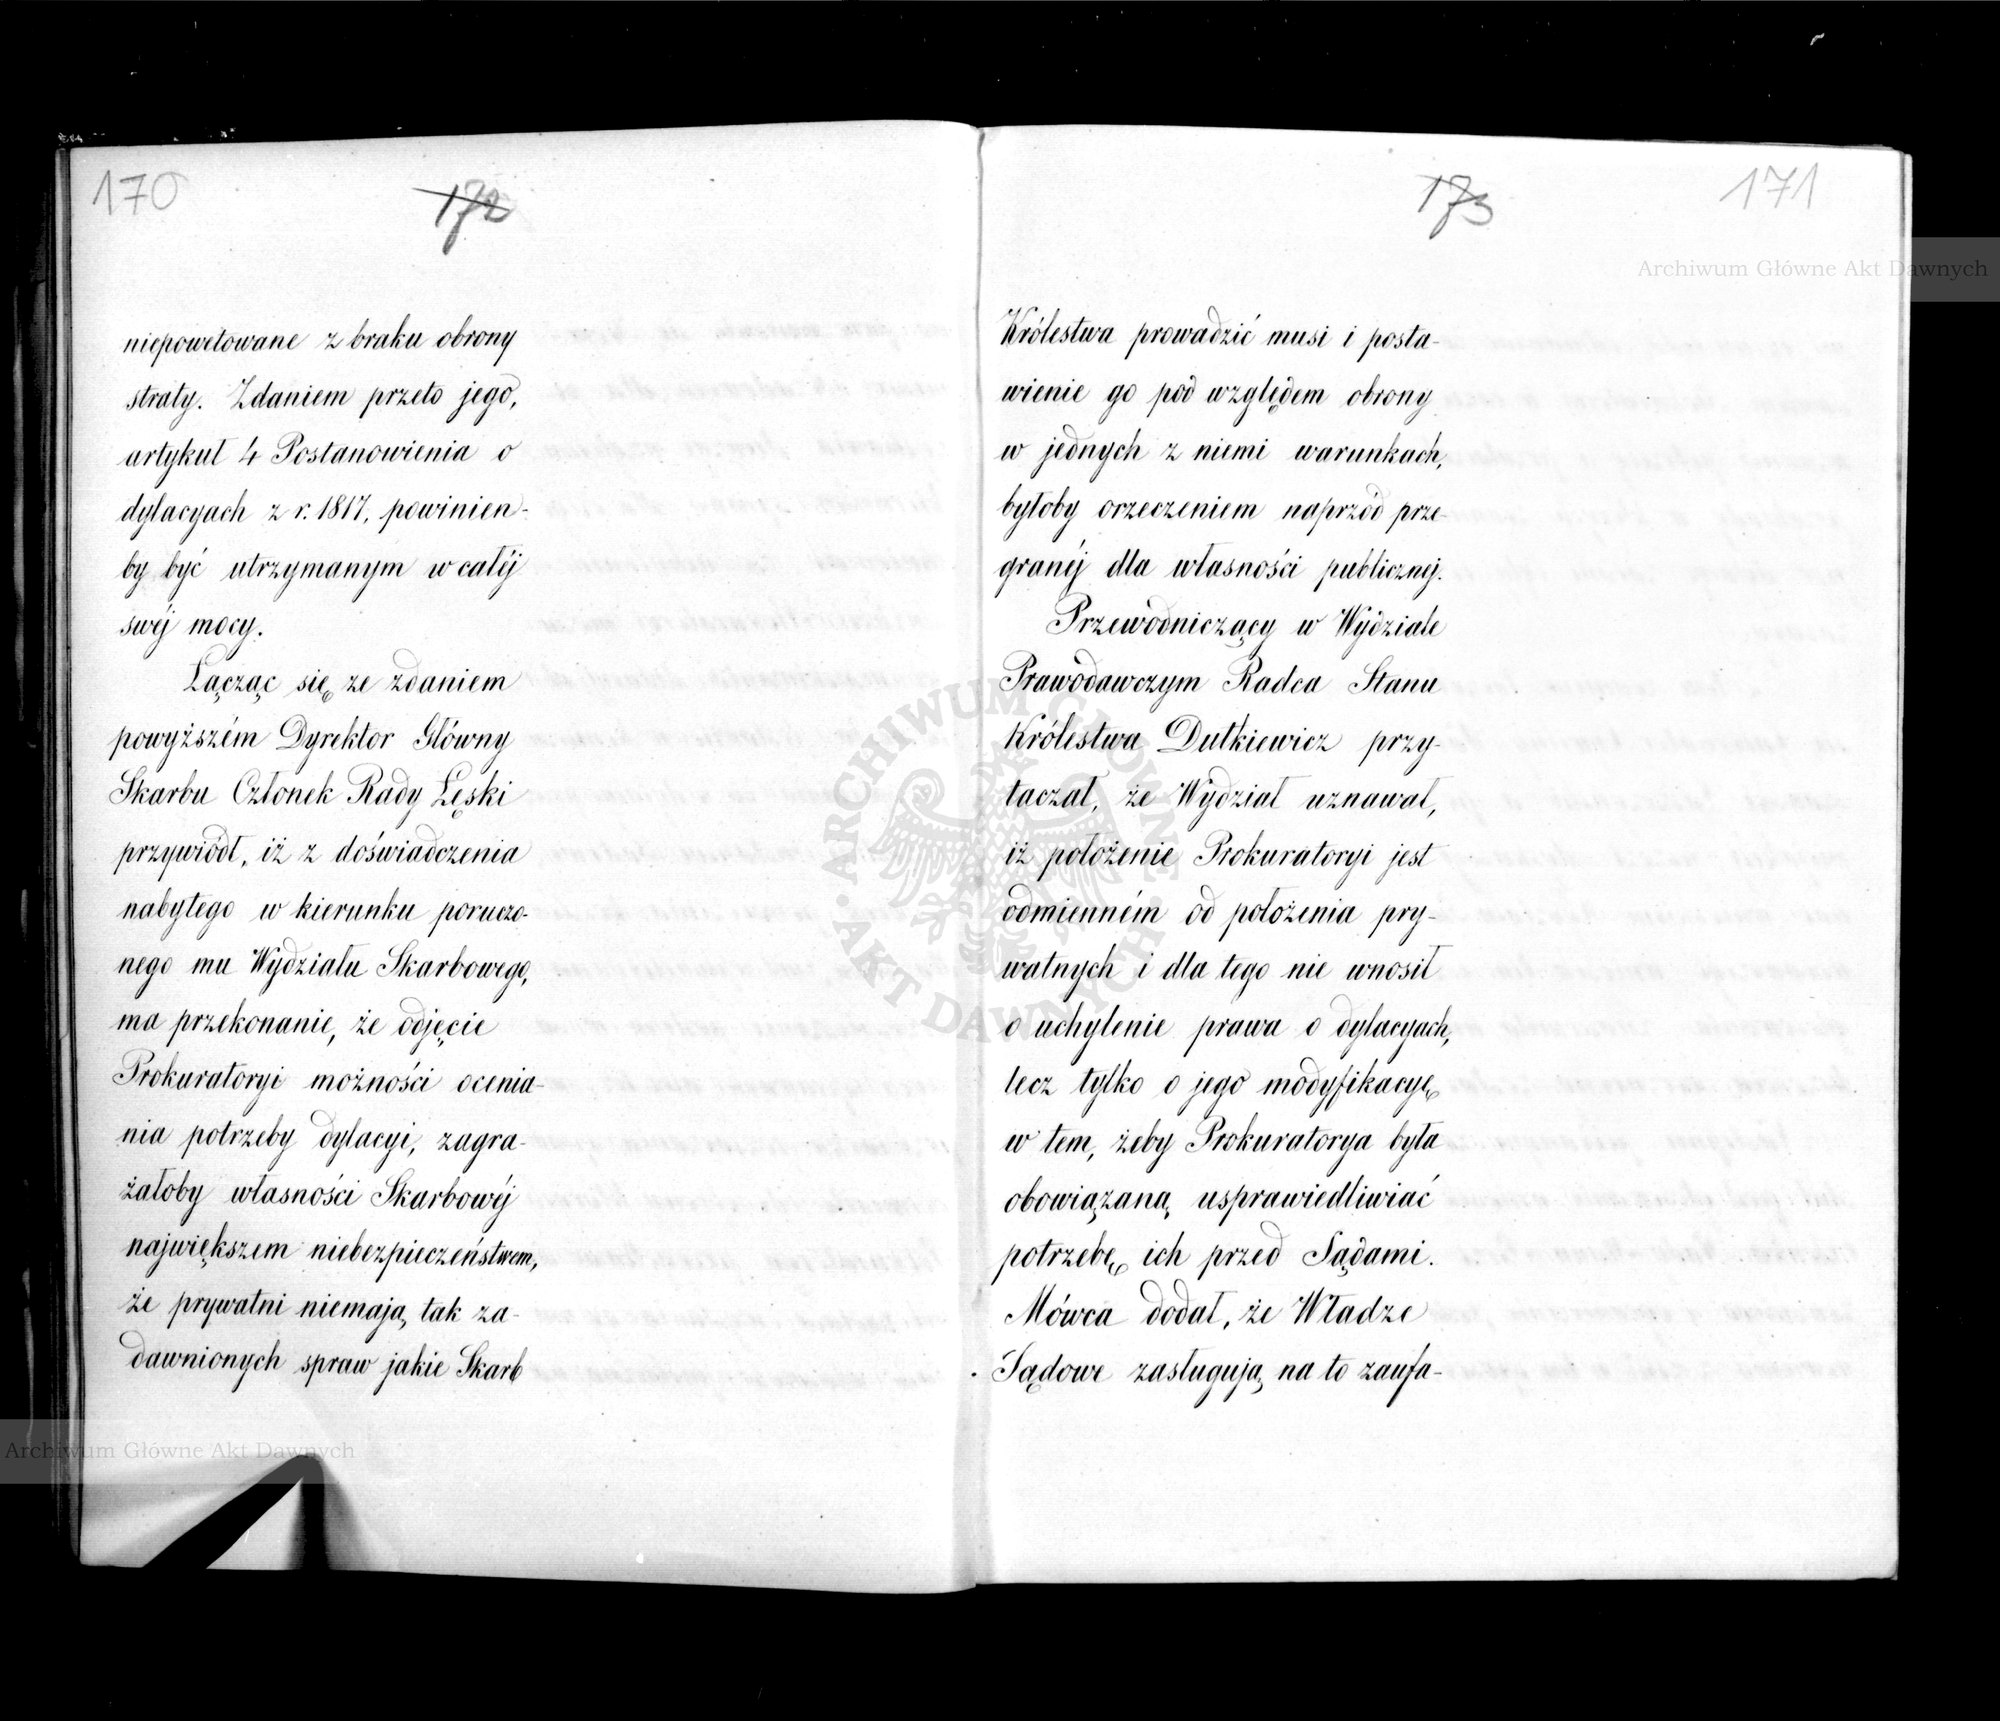 170
172
niepowetowane z braku obrony
straty. Zdaniem przeto jego,
artykuł 4 Postanowienia o
dylacyach z r. 1817, powinien-
by być utrzymanym w całéj
swéj mocy.
Łącząc się ze zdaniem
powyższém Dyrektor Główny
Skarbu Członek Rady Łęski
przywiódł, iż z doświadczenia
nabytego w kierunku poruczo-
nego mu Wydziału Skarbowego,
ma przekonanie, że odjęcie
Prokuratoryi możności ocenia-
nia potrzeby dylacyi, zagra-
żałoby własności Skarbowéj
największem niebezpieczeństwem,
że prywatni niemają tak za-
dawnionych spraw jakie Skarb
173
171
Archiwum Główne Akt Dawnych
Królestwa prowadzić musi i posta-
wienie go pod względem obrony
w jednych z niemi warunkach,
byłoby orzeczeniem naprzód prze-
granéj dla własności publicznej.
Przewodniczący w Wydziale
Prawodawczym Radca Stanu
Królestwa Dutkiewicz przy-
taczał, że Wydział uznawał,
iż położenie Prokuratoryi jest
odmienném od położenia pry-
watnych i dla tego nie wnosił
o uchylenie prawa o dylacyach,
lecz tylko o jego modyfikacyę
w tem, żeby Prokuratorya była
obowiązaną usprawiedliwiać
potrzebę ich przed Sądami.
Mówca dodał, że Władze
Sądowe zasługują na to zaufa-
ARCHIWUM GŁÓWNE
AKT DAWNYCH
Archiwum Główne Akt Dawnych